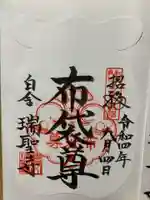 招福
令和四年
八月四日
布袋尊
白金
瑞聖寺